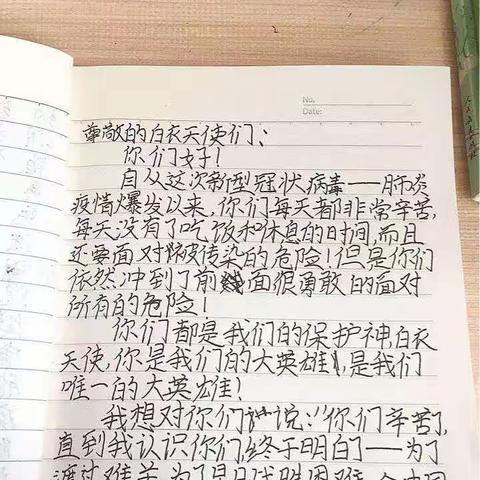 No.
Date:
尊敬的白衣天使们:
你们好!
自从这次新型冠状病毒——肺炎
疫情爆发以来,你们每天都非常辛苦,
每天没有了吃饭和休息的时间,而且
还要面对被传染的危险!但是你们
依然冲到了前线面很勇敢的面对
所有的危险!
你们都是我们的保护神,白衣
天使,你是我们的大英雄,是我们
唯一的大英雄!
我想对你们说:“你们辛苦了,
直到我认识你们,终于明白了——为了
渡过难关,为了早日战胜困难,全中国